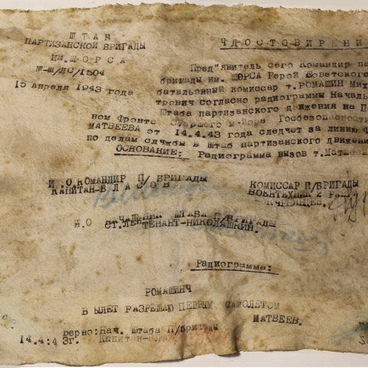 ШТАБ
ПАРТИЗАНСКОЙ БРИГАДЫ
ИМ. ЩОРСА
15 апреля 1943 года
УДОСТОВЕРЕНИ
Пред"явитель сего Командир па
бригады им. ЩОРСА Герой Советског
батальонный комиссар т. РОМАШИН Мих
трович согласно радиограммы Началь
Штаба партизанского движения на П
ном Фронте Старшего м-йора Госбезопасност
МАТВЕЕВА от 14.4.43 года следует за линию ф
по делам службы в штаб партизанского движени
ОСНОВАНИЕ: Радиограмма вызов т. Матве
И.О КОМАНДИР П/БРИГАДЫ
КАПИТАН-ВЛАСОВ
КОМИССАР П/БРИГАДЫ
И.О НАЧАЛЬНИКА ШТАБА П/БРИГАДЫ
СТ. ЛЕЙТЕНАНТ-НИКОЛАШКИН.
Радиограмма:
РОМАШИНУ
ВЫЛЕТ РАЗРЕШАЮ ПЕРВЫМ САМОЛЕТОМ
МАТВЕЕВ.
верно: Нач. штаба П/Бригады
14.4.43г.